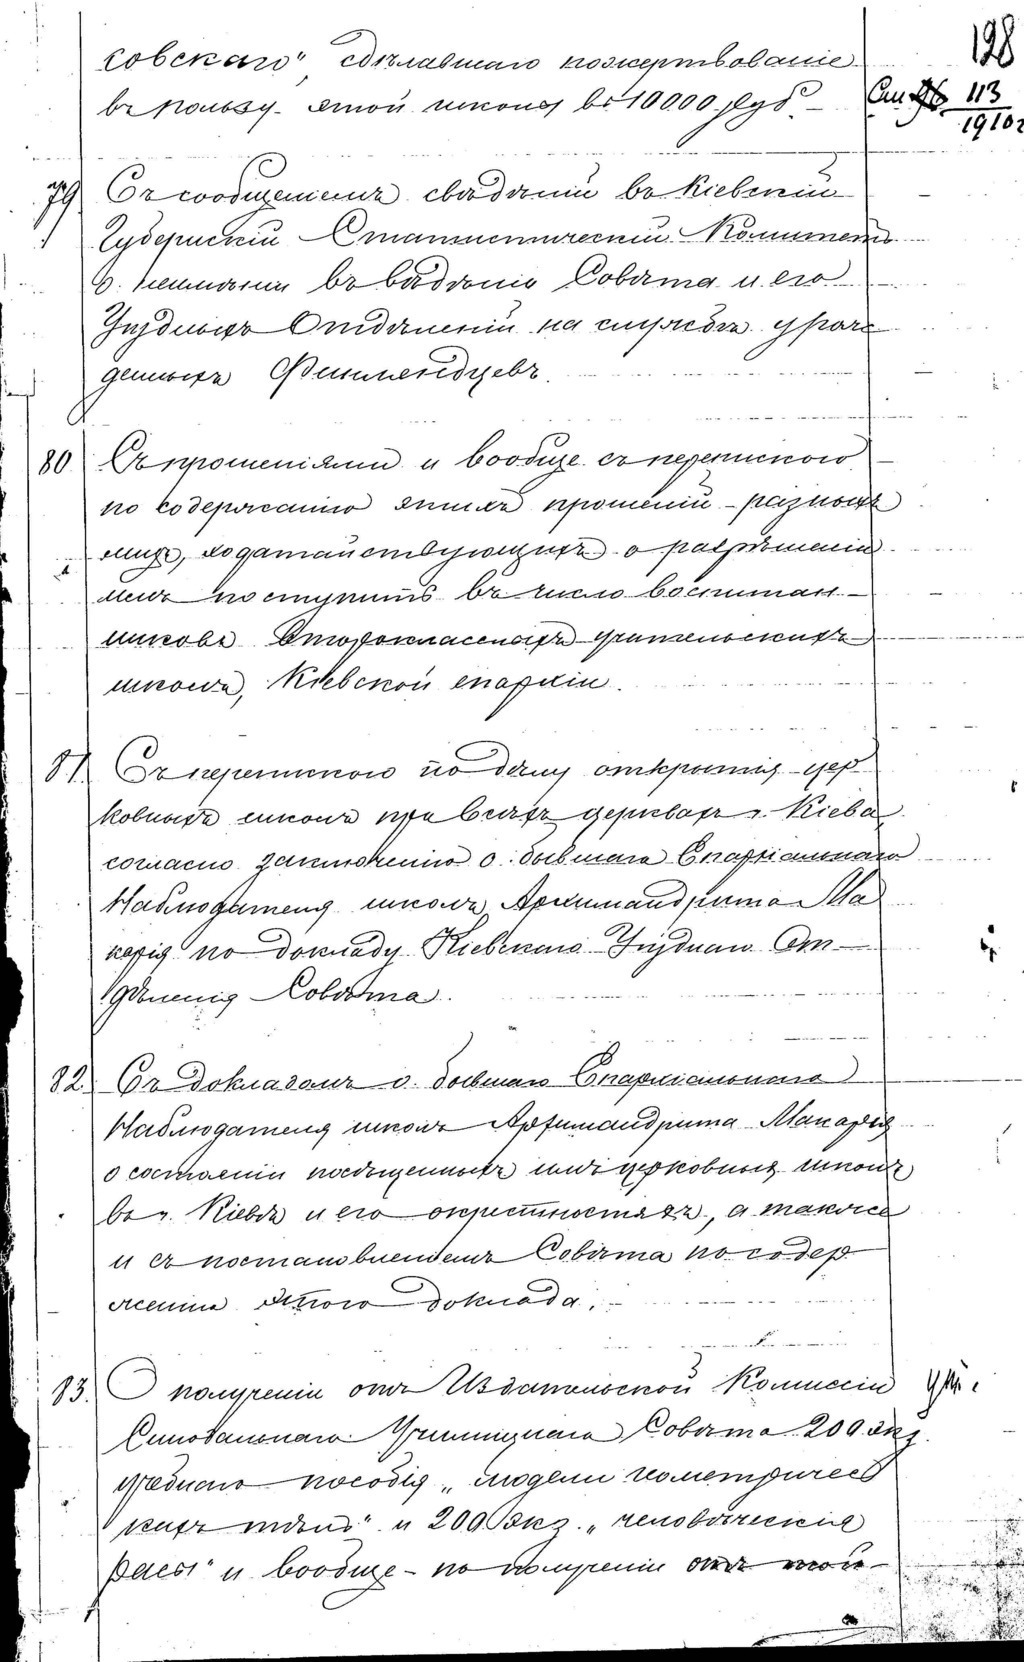 128
совскаго" сдѣлавшаго пожертвованіе
въ пользу этой школы въ 10000 руб.
См. 113
1910 г
79 Съ сообщеніемъ свѣдѣній въ Кіевскій
Губернскій Статистическій Комитетъ
о неимѣніи въ вѣдѣніи Совѣта и его
Уѣздныхъ Отдѣленій на службѣ урож
денныхъ Финляндцевъ.
80 Съ прошеніями и вообще съ перепискою
по содержанію этихъ прошеній разныхъ
лицъ, ходатайствующихъ о разрѣшеніи
имъ поступить въ число воспитан-
никовъ Второклассныхъ учительскихъ
школъ, Кіевской епархіи.
81. Съ перепискою по дѣлу открытія цер
ковныхъ школъ при всѣхъ церквахъ г. Кіева
согласно заключенію о. бывшаго Епархіальнаго
Наблюдателя школъ Архимандрита Ма
карія по докладу Кіевскаго Уѣзднаго От-
дѣленія Совѣта.
82. Съ докладомъ о. бывшаго Епархіальнаго
Наблюдателя школъ Архимандрита Макарія
о состояніи посѣщенныхъ имъ церковныхъ школъ
въ г. Кіевѣ и его окрестностяхъ, а также
и съ постановленіемъ Совѣта по содер
жанію этого доклада.
83. О полученіи отъ Издательской Комиссіи
Синодальнаго Училищнаго Совѣта 200 экз.
учебнаго пособія „модели геометричес
кихъ тѣлъ" и 200 экз. „человѣческія
расы" и вообще по полученіи отъ той-